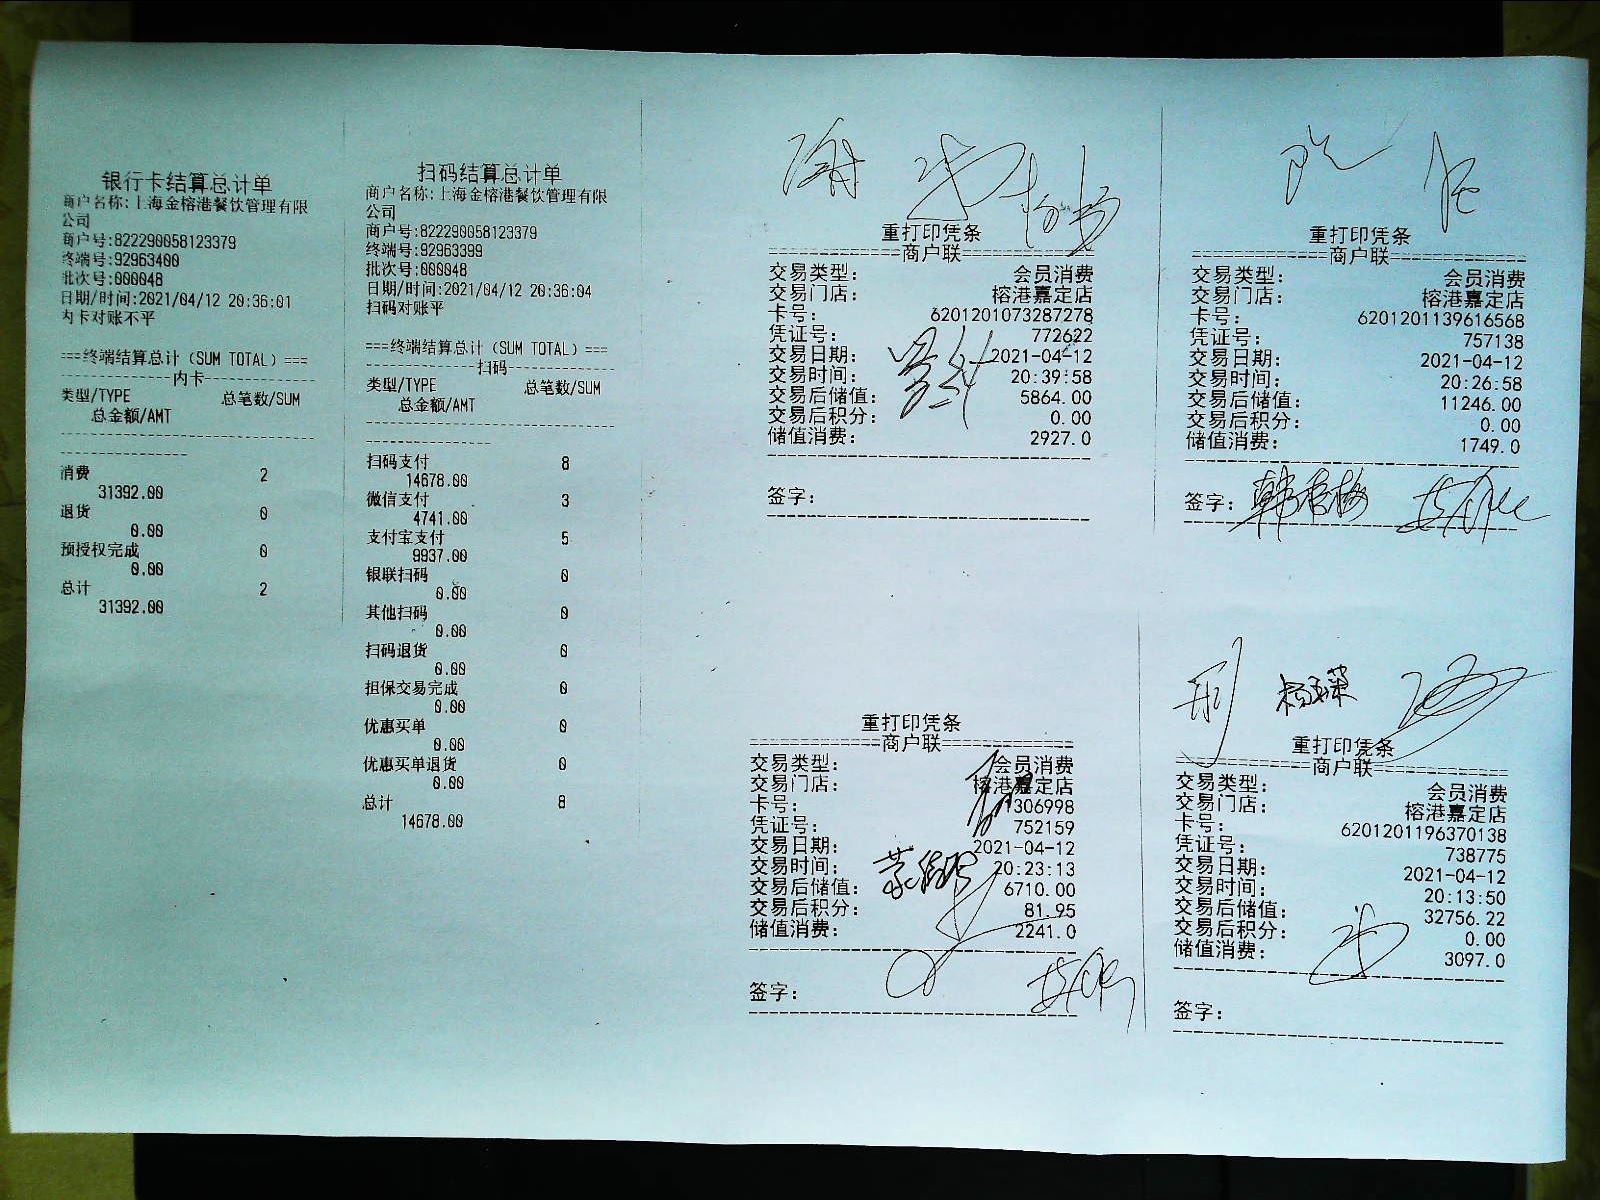 银行卡结算总计单
商户名称:上海金榕港餐饮管理有限
公司
商户号:822290058123379
终端号:92963400
批次号:000048
日期/时间:2021/04/12 20:36:01
内卡对账不平
===终端结算总计(SUM TOTAL)===
----------------内卡----------------
类型/TYPE 总笔数/SUM
总金额/AMT
消费 2
31392.00
退货 0
0.00
预授权完成 0
0.00
总计 2
31392.00
扫码结算总计单
商户名称:上海金榕港餐饮管理有限
公司
商户号:822290058123379
终端号:92963399
批次号:000048
日期/时间:2021/04/12 20:36:04
扫码对账平
===终端结算总计(SUM TOTAL)===
----------------扫码----------------
类型/TYPE 总笔数/SUM
总金额/AMT
扫码支付 8
14678.00
微信支付 3
4741.00
支付宝支付 5
9937.00
银联扫码 0
0.00
其他扫码 0
0.00
扫码退货 0
0.00
担保交易完成 0
0.00
优惠买单 0
0.00
优惠买单退货 0
0.00
总计 8
14678.00
谢
重打印凭条
============商户联============
交易类型: 会员消费
交易门店: 榕港嘉定店
卡号: 6201201073287278
凭证号: 772622
交易日期: 2021-04-12
交易时间: 20:39:58
交易后储值: 5864.00
交易后积分: 0.00
储值消费: 2927.0
签字:
重打印凭条
============商户联============
交易类型: 会员消费
交易门店: 榕港嘉定店
卡号: 6201201139616568
凭证号: 757138
交易日期: 2021-04-12
交易时间: 20:26:58
交易后储值: 11246.00
交易后积分: 0.00
储值消费: 1749.0
签字:
重打印凭条
============商户联============
交易类型: 会员消费
交易门店: 榕港嘉定店
卡号: 1306998
凭证号: 752159
交易日期: 2021-04-12
交易时间: 20:23:13
交易后储值: 6710.00
交易后积分: 81.95
储值消费: 2241.0
签字:
重打印凭条
============商户联============
交易类型: 会员消费
交易门店: 榕港嘉定店
卡号: 6201201196370138
凭证号: 738775
交易日期: 2021-04-12
交易时间: 20:13:50
交易后储值: 32756.22
交易后积分: 0.00
储值消费: 3097.0
签字: